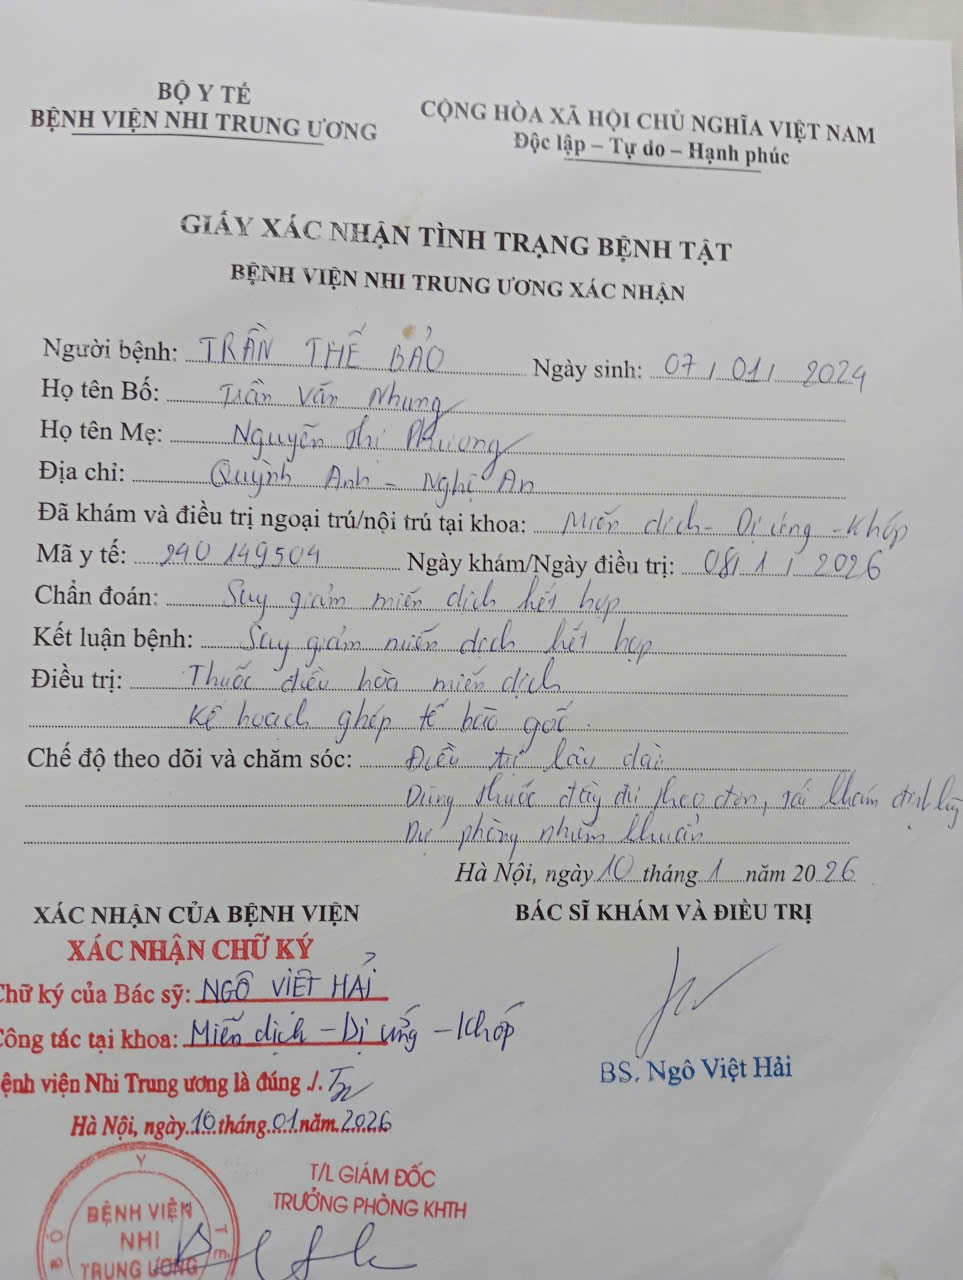 BỘ Y TẾ
BỆNH VIỆN NHI TRUNG ƯƠNG
CỘNG HÒA XÃ HỘI CHỦ NGHĨA VIỆT NAM
Độc lập – Tự do – Hạnh phúc
GIẤY XÁC NHẬN TÌNH TRẠNG BỆNH TẬT
BỆNH VIỆN NHI TRUNG ƯƠNG XÁC NHẬN
Người bệnh: TRẦN THẾ BẢO Ngày sinh: 07/01/2024
Họ tên Bố: Trần Văn Nhung
Họ tên Mẹ: Nguyễn Thị Phương
Địa chỉ: Quỳnh Anh - Nghệ An
Đã khám và điều trị ngoại trú/nội trú tại khoa: Miễn dịch - Dị ứng - Khớp
Mã y tế: 240149504 Ngày khám/Ngày điều trị: 08/1/2026
Chẩn đoán: Suy giảm miễn dịch hết hợp
Kết luận bệnh: Suy giảm miễn dịch hết hợp
Điều trị: Thuốc điều hòa miễn dịch
Kế hoạch ghép tế bào gốc.
Chế độ theo dõi và chăm sóc: Điều trị lâu dài
Dùng thuốc đầy đủ theo đơn, tái khám định kỳ
Dự phòng nhiễm khuẩn
Hà Nội, ngày 10 tháng 1 năm 2026
XÁC NHẬN CỦA BỆNH VIỆN
BÁC SĨ KHÁM VÀ ĐIỀU TRỊ
XÁC NHẬN CHỮ KÝ
Chữ ký của Bác sỹ: NGÔ VIỆT HẢI
Công tác tại khoa: Miễn dịch - Dị ứng - Khớp
Bệnh viện Nhi Trung ương là đúng ./.
BS. Ngô Việt Hải
Hà Nội, ngày 10 tháng 01 năm 2026
T/L GIÁM ĐỐC
TRƯỞNG PHÒNG KHTH
BỘ Y TẾ
BỆNH VIỆN
NHI
TRUNG ƯƠNG